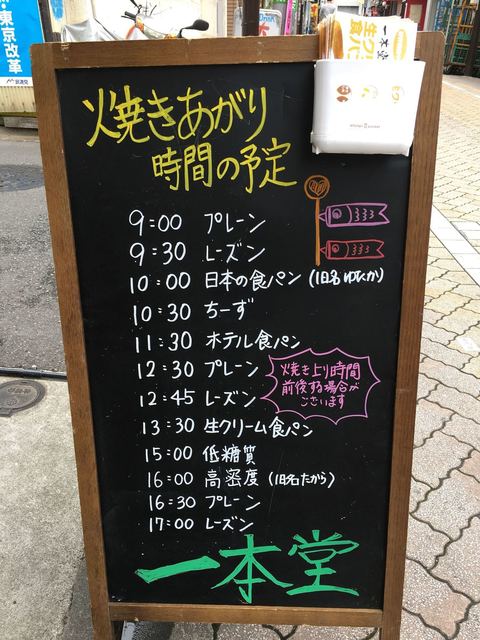 東京改革
一本堂
生クリ
食パン
焼きあがり
時間の予定
9:00 プレーン
9:30 レーズン
10:00 日本の食パン (旧名ゆたか)
10:30 ちーず
11:30 ホテル食パン
12:30 プレーン
12:45 レーズン
13:30 生クリーム食パン
15:00 低糖質
16:00 高密度 (旧名たから)
16:30 プレーン
17:00 レーズン
焼き上り時間
前後する場合が
ございます
一本堂